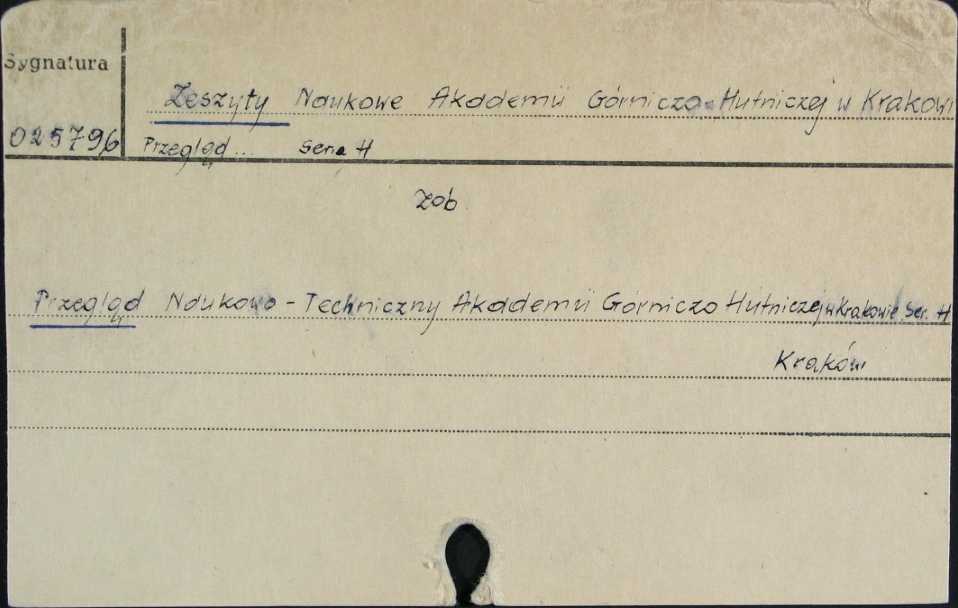 Sygnatura
Zeszyty Naukowe Akademii Górniczo-Hutniczej w Krakowi
025796 Przegląd... Seria H
zob
Przegląd Naukowo-Techniczny Akademii Górniczo Hutniczej w Krakowie. Ser. H
Kraków